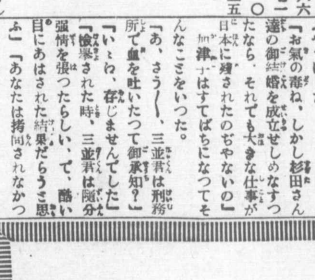 「お氣の毒ね、しかし杉田さん
達の御結婚を成立せしめなすつ
たなら、それでも大きな仕事が
日本に殘されたのぢやないの」
津子はすてばちになつてそ
んなことをいつた。
「あ、さう――、三並君は刑務
所で血を吐いたつて御承知?」
「いゝえ、存じませんでした」
「檢擧された時、三並君は隨分
強情を張つたらしい、で、酷い
目にあはされた結果だらうと思
ふ」「あなたは拷問されなかつ